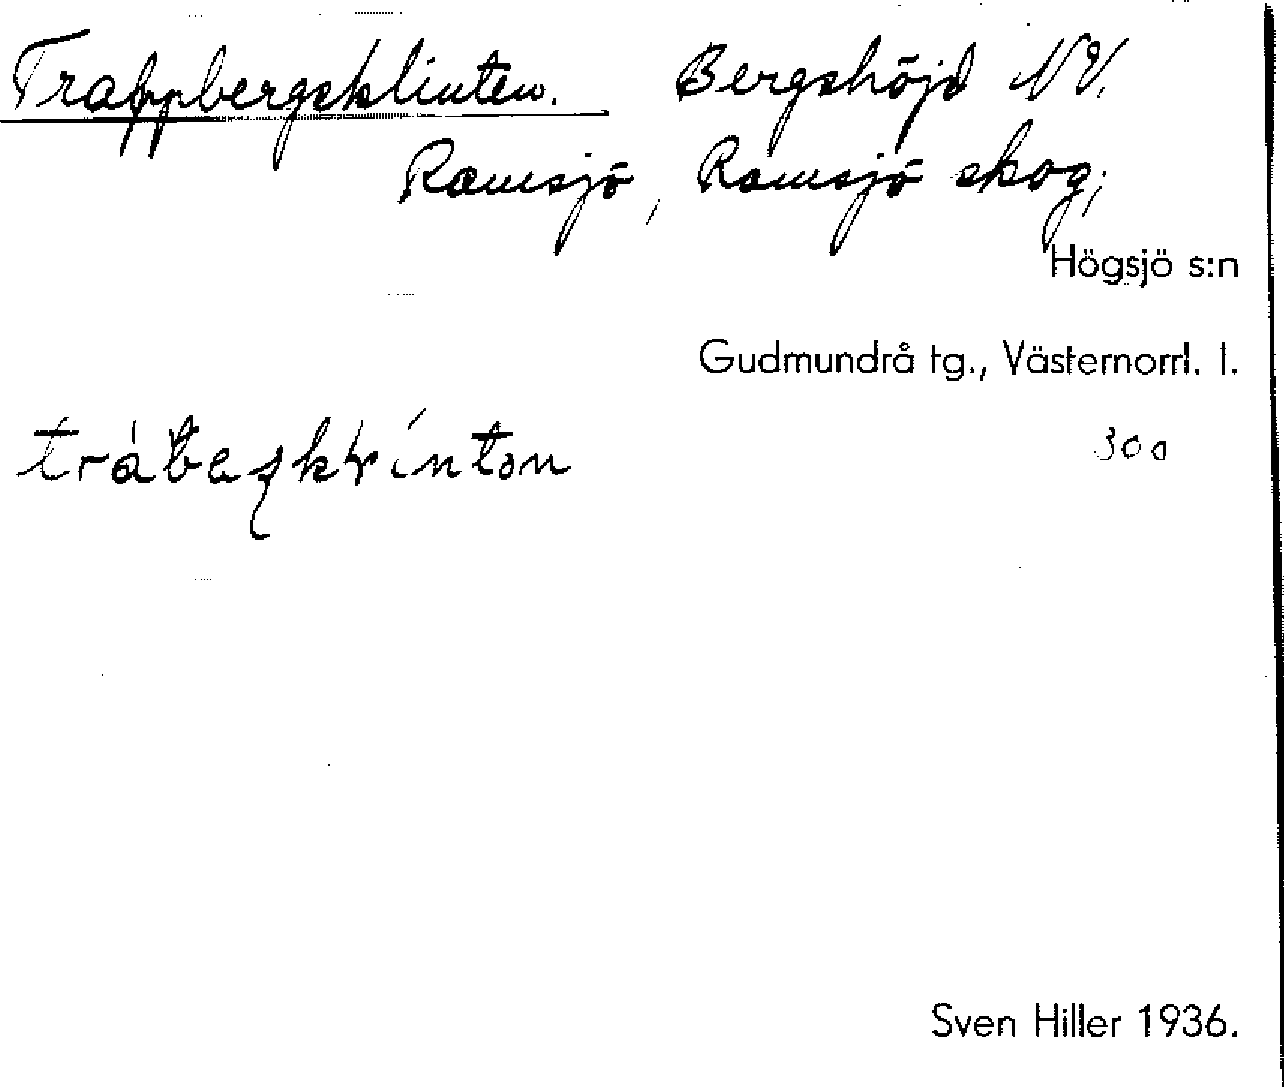 Trappbergsklinten. Bergshöjd NV.
Ramsjö, Ramsjö skog;
Högsjö s:n
Gudmundrå tg., Västernorrl. l.
30a
Sven Hiller 1936.